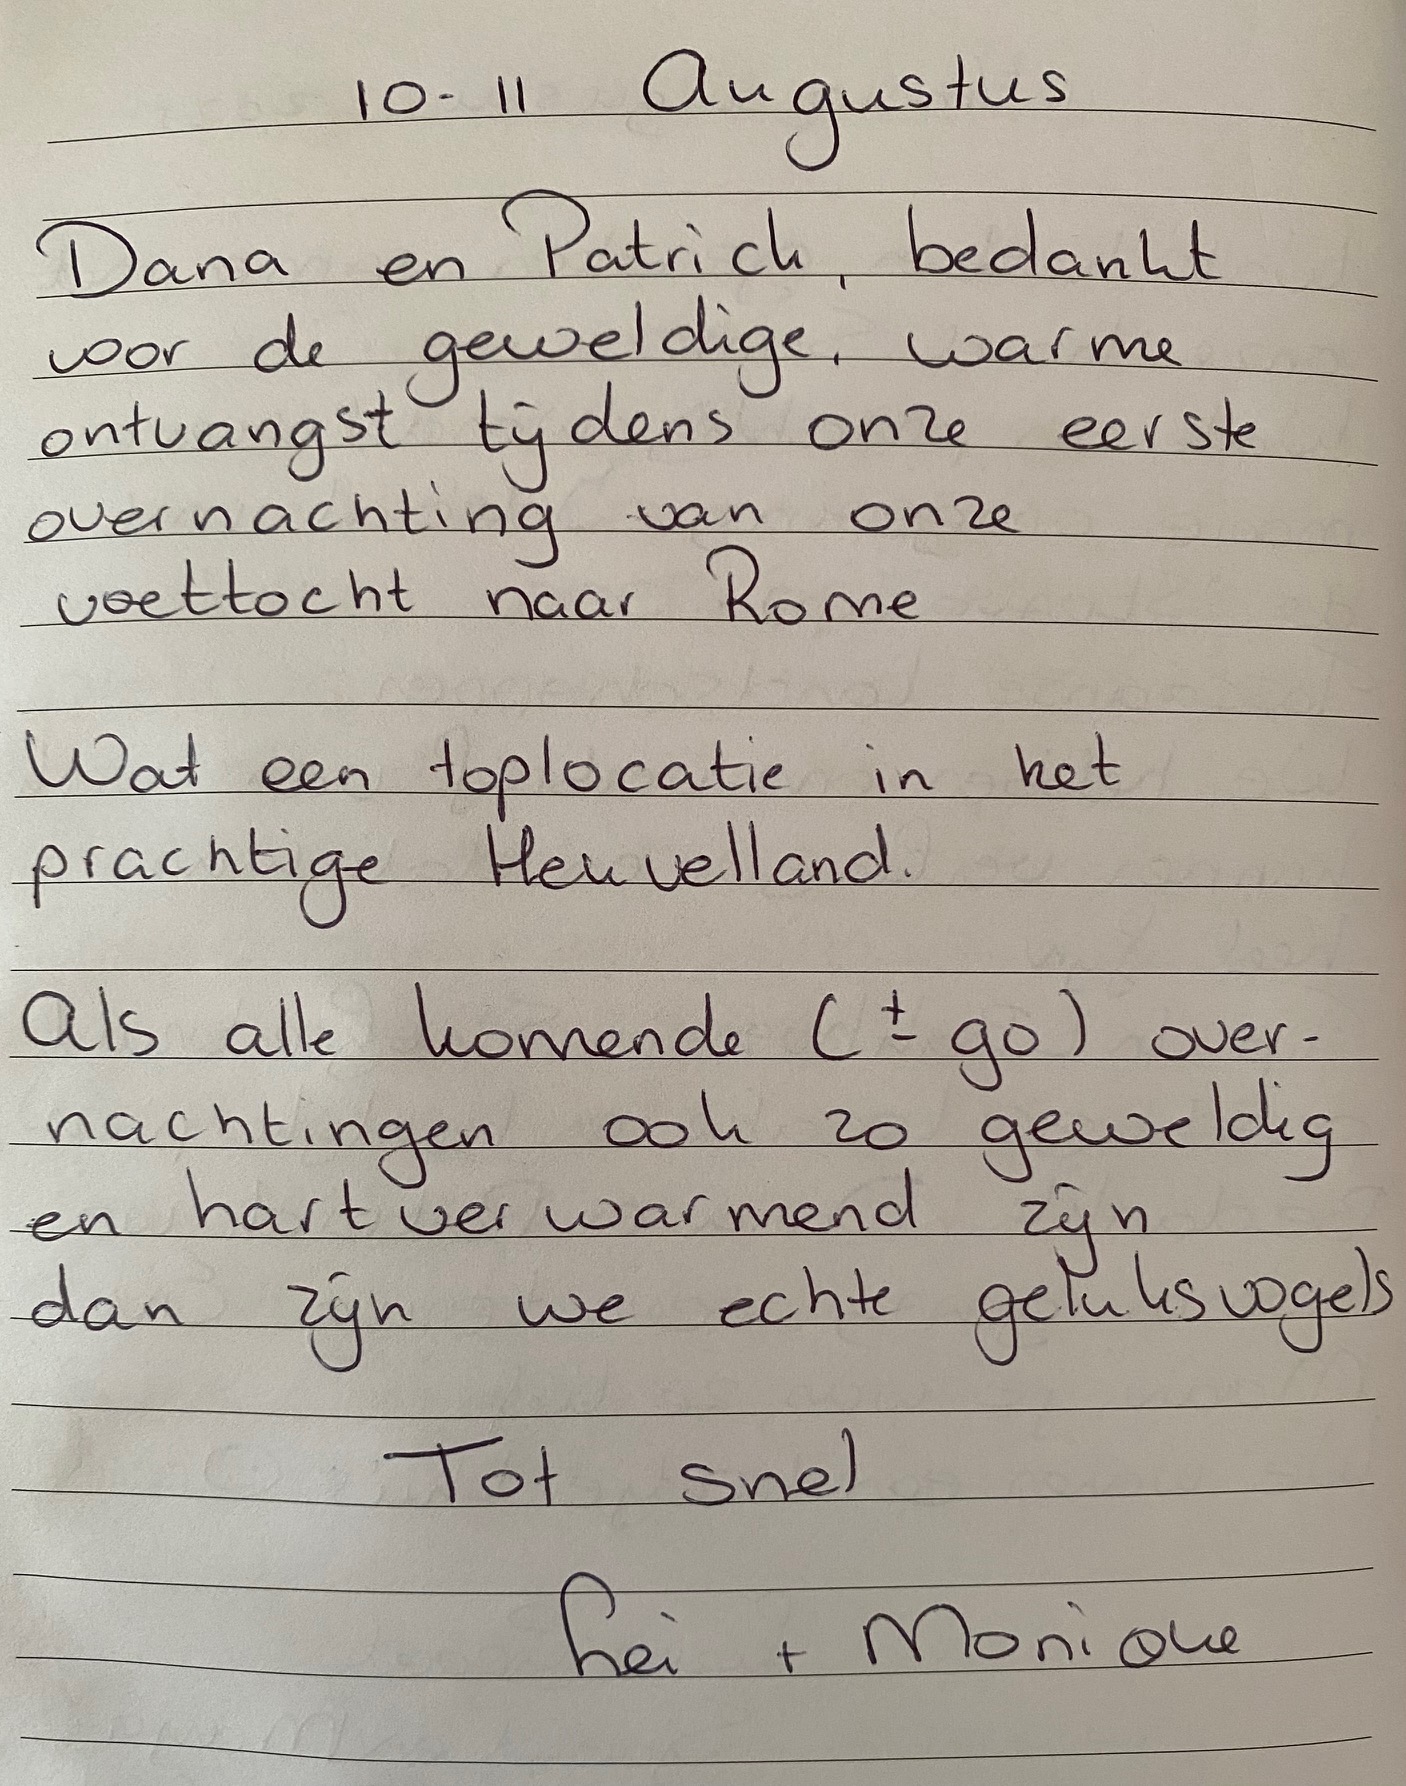 10-11 Augustus
Dana en Patrick, bedankt
voor de geweldige, warme
ontvangst tijdens onze eerste
overnachting van onze
voettocht naar Rome
Wat een toplocatie in het
prachtige Heuvelland.
Als alle komende (± 90) over-
nachtingen ook zo geweldig
en hartverwarmend zijn
dan zijn we echte geluksvogels
Tot snel
+ Monique